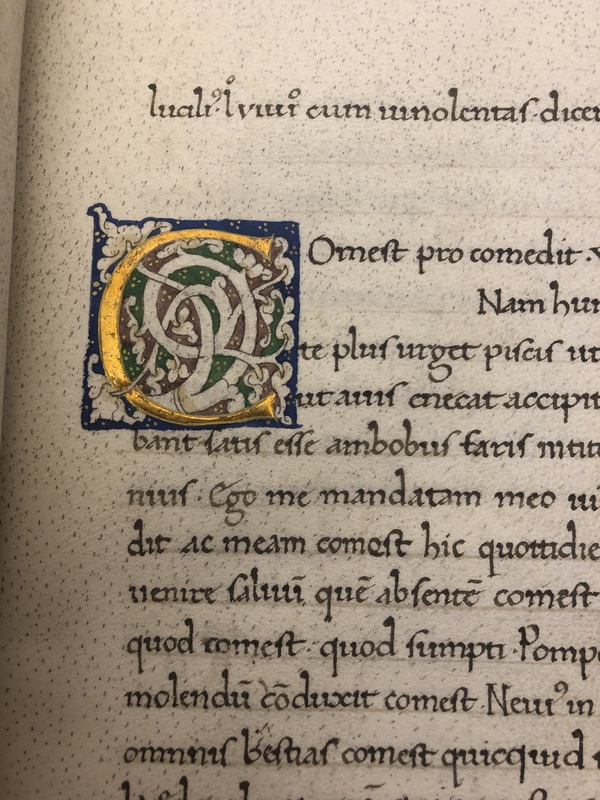 lucili⁹ l vıııı̊ cum uinolentas dicer
Comest pro comedit ·
Nam hun
te plus urget piscis ut
ut auis enecat accipit
bant satis esse ambobus faris intit
nius · Ego me mandatam meo ui
dit ac meam comest hic quottidie
uenire saluū quē absentē comest
quod comest · quod sumpti · Pomp
molendū cōduxit comest · Neui⁹ in
omnnis bestias comest quicquid